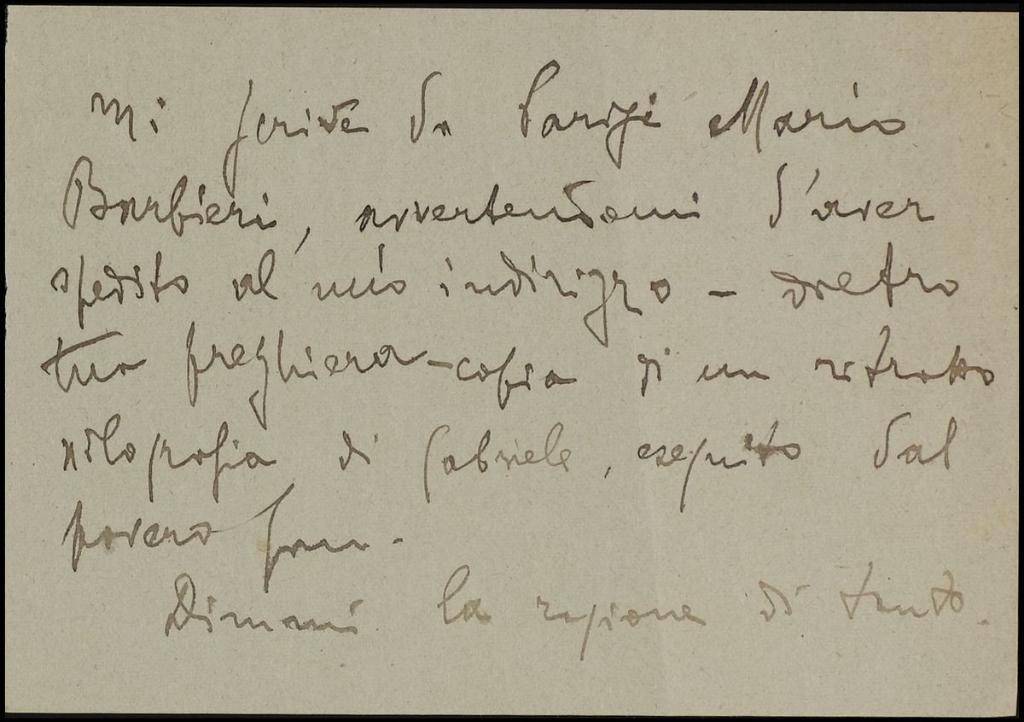 Mi scrive da Parigi Mario
Barbieri, avvertendomi d'aver
spedito al mio indirizzo – dietro
tua preghiera – copia di un ritratto
xilografia di Gabriele, eseguito dal
povero
Dimmi la ragione di tanto.